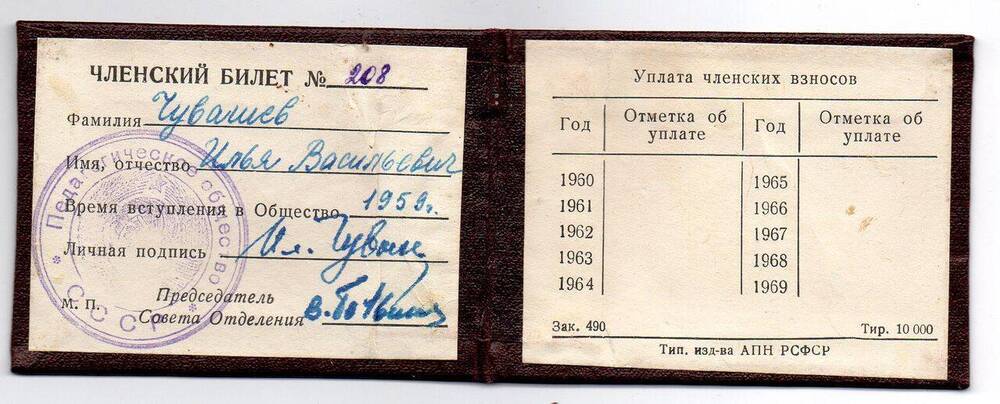 ЧЛЕНСКИЙ БИЛЕТ № 208
Фамилия
Имя, отчество Илья Васильевич
Время вступления в Общество 1959г.
Личная подпись Ил.
М. П. Председатель
Совета Отделения
* Педагогическое общество *
СССР
Уплата членских взносов
Год Отметка об уплате Год Отметка об уплате
1960 1965
1961 1966
1962 1967
1963 1968
1964 1969
Зак. 490 Тир. 10 000
Тип. изд-ва АПН РСФСР